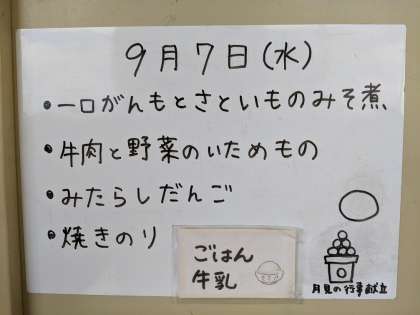 9月7日(水)
・一口がんもとさといものみそ煮
・牛肉と野菜のいためもの
・みたらしだんご
・焼きのり
ごはん
牛乳
月見の行事献立